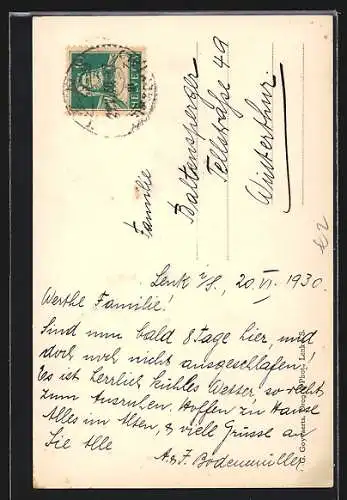 HELVETIA
10
Familie
Baltensperger
Tellstraße 49
Winterthur
Lenk i/S., 20. VI. 1930.
Werthe Familie!
Sind nun bald 8 Tage hier, und
doch noch nicht ausgeschlafen!
Es ist herrlich kühles Wetter so recht
zum Ausruhen. Hoffen zu Hause
Alles im Alten, & viele Grüsse an
Sie Alle
A. & F. Bodenmüller
Goynaerts, Photogr. Lenk i/S.